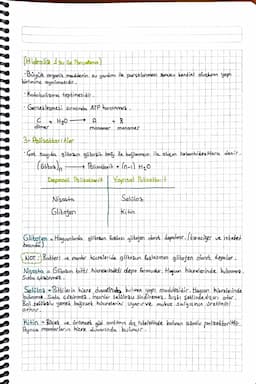 (Hidroliz / Su ile Parçalama)
- Büyük organik maddelerin su yardımı ile parçalanması sonucu kendini oluşturan yapı
birimine ayrılmasıdır.
- Katabolizma tepkimesidir.
- Gerçekleşmesi sırasında ATP harcanmaz.
C + H₂O → A + B
dimer monomer monomer
3- Polisakkaritler
Çok sayıda glikozun glikozit bağı ile bağlanması ile oluşan karbonhidratlara denir.
(Glikoz)n → Polisakkarit + (n-1) H₂O
Depo Polisakkarit Yapısal Polisakkarit
Nişasta Selüloz
Glikojen Kitin
Glikojen = Hayvanlarda glikozun fazlası glikojen olarak depolanır. (karaciğer ve iskelet
kasında)
NOT: Bakteri ve mantar hücrelerinde glikozun fazlasının glikojen olarak depolar.
Nişasta = Glikozun bitki hücrelerindeki depo formudur. Hayvan hücrelerinde bulunmaz.
Suda çözünmez.
Selüloz = Bitkilerin hücre duvarında bulunan yapı maddesidir. Hayvan hücrelerinde
bulunmaz. Suda çözünmez. İnsanlar selülozu sindiremez. Dışkı şeklinde dışarı atar.
bağırsak hücrelerini uyarır ve mukus salgısının üretimini
artırır.
Kitin = Böcek ve örümcek gibi canlıların dış iskeletinde bulunan azotlu polisakkarittir.
Ayrıca mantarların hücre duvarında bulunur.